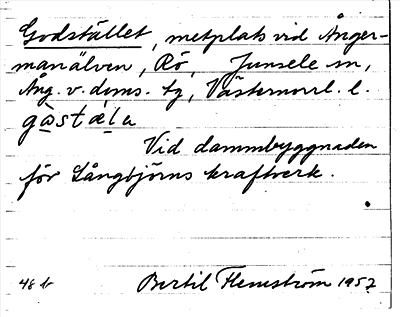 Godstället, metplats vid Ånger-
manälven, Rö, Junsele sn,
Ång. v. doms. tg, Västernorrl. l.
gòstæ̀la
Vid dammbyggnaden
för Långbjörns kraftverk.
48 b Bertil Flemström 1957